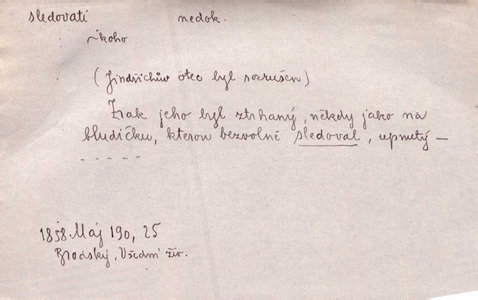 sledovati nedok.
~koho
(Jindřichův otec byl rozrušen)
Zrak jeho byl ztrhaný, někdy jako na
bludičku, kterou bezvolně sledoval, upnutý —
- - - - -
1858. Máj 190, 25
Brodský, Všední živ.